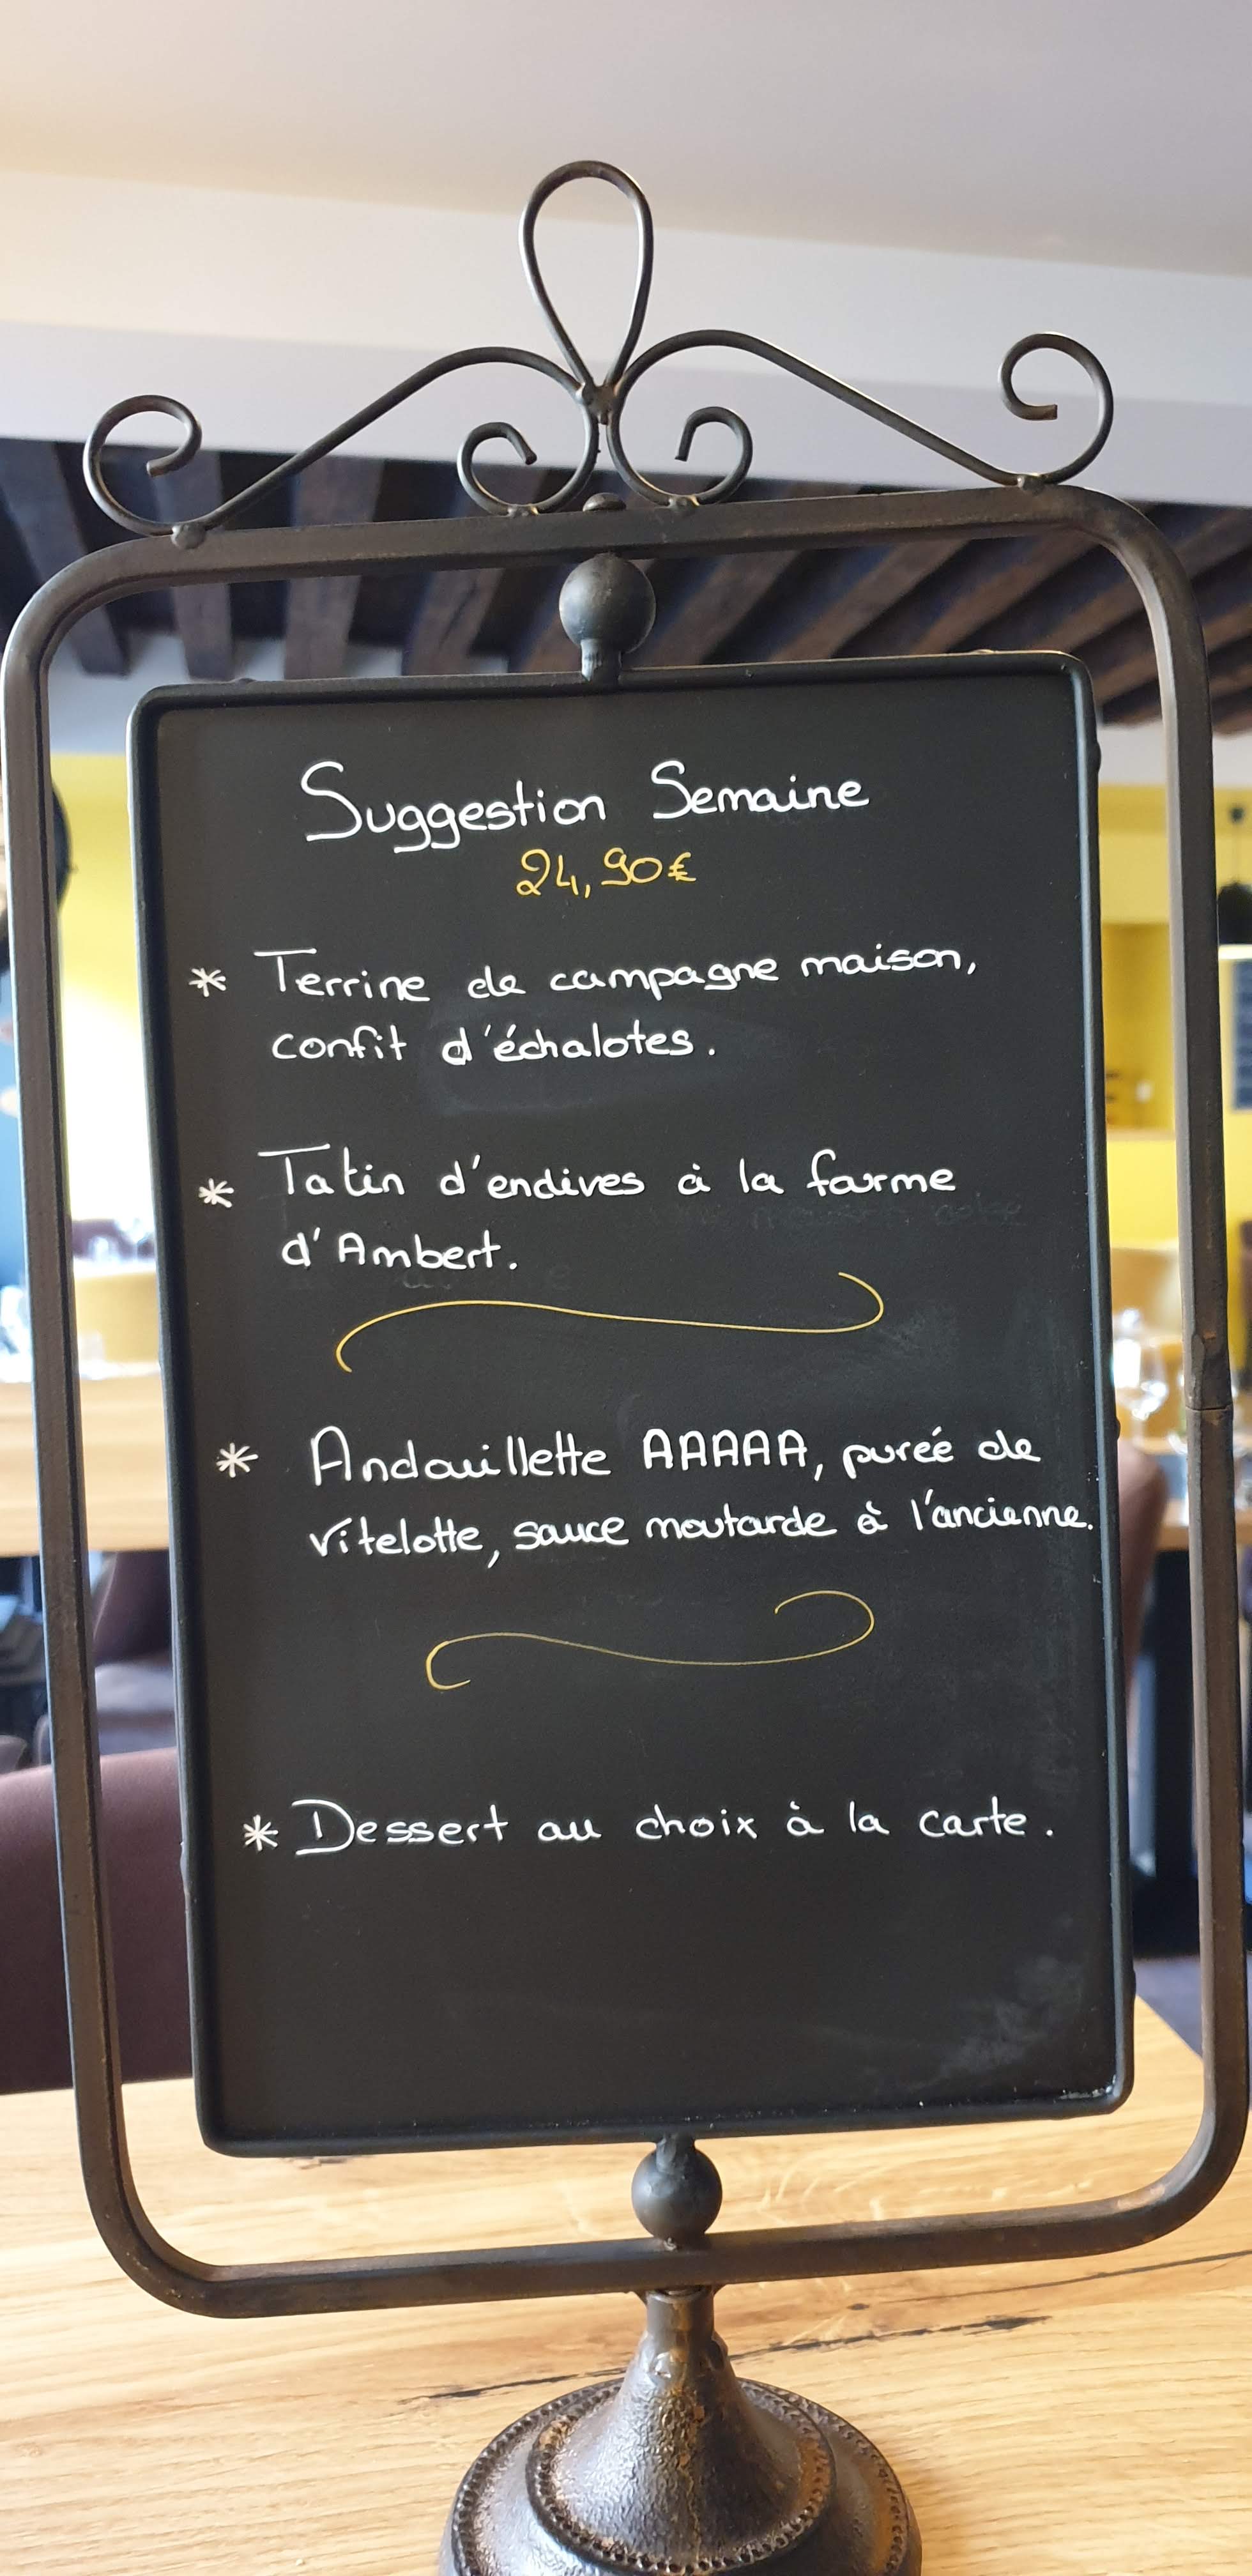 Suggestion Semaine
24,90€
* Terrine de campagne maison,
confit d'échalotes.
* Tatin d'endives à la farme
d'Ambert.
* Andouillette AAAAA, purée de
vitelotte, sauce moutarde à l'ancienne.
* Dessert au choix à la carte.